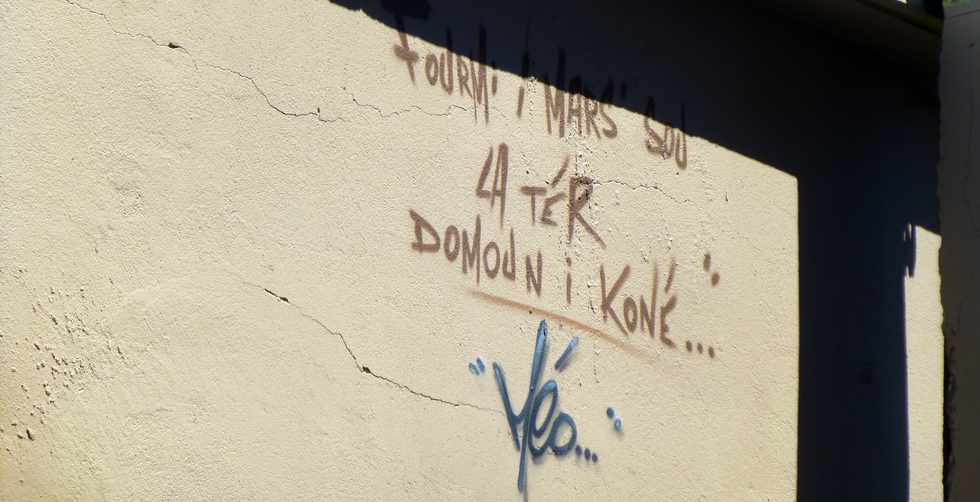 FOURMI I MARS' SOU
LA TÉR
DOMOUN i KONÉ...
"Méo..."